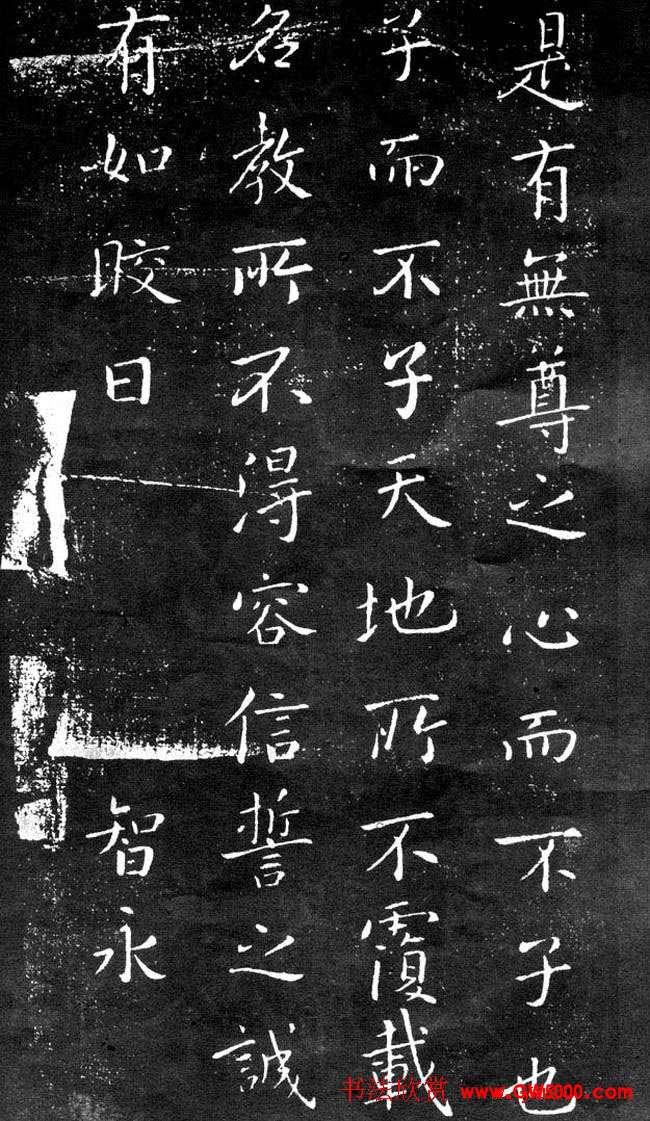 是有無尊之心而不子也
子而不子天地所不覆載
名教所不得容信誓之誠
有如皎日 智永
书法欣赏 www.GW5000.com